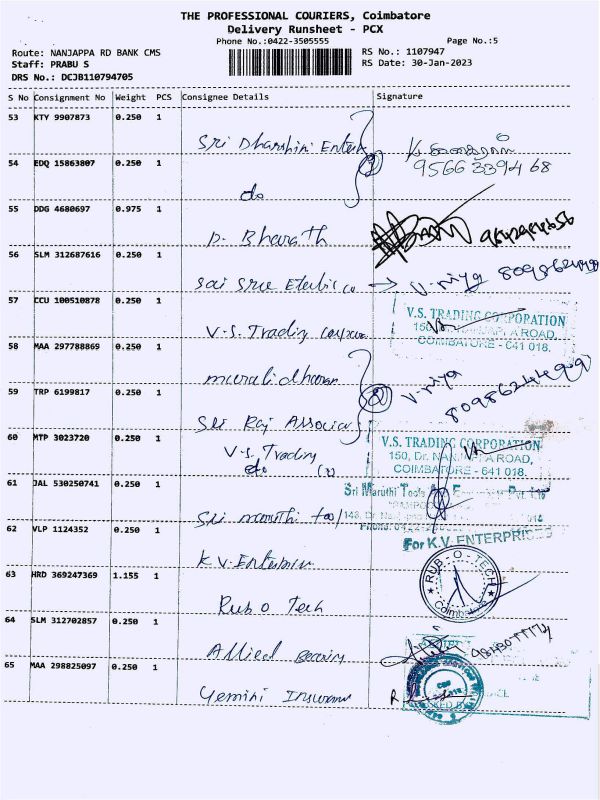 THE PROFESSIONAL COURIERS, Coimbatore
Delivery Runsheet - PCX
Phone No.:0422-3505555
Page No.:5
Route: NANJAPPA RD BANK CMS
RS No.: 1107947
Staff: PRABU S
RS Date: 30-Jan-2023
DRS No.: DCJB110794705
S No Consignment No Weight PCS Consignee Details Signature
53 KTY 9907873 0.250 1
Sri Dharshini
9566339468
54 EDQ 15863807 0.250 1
do
55 DDG 4680697 0.975 1
P. Bharath
56 SLM 312687616 0.250 1
Sai Sree
57 CCU 100510878 0.250 1
V.S. TRADING CORPORATION
COIMBATORE - 641 018.
V.S. Trading
58 MAA 297788869 0.250 1
muralidharan
59 TRP 6199817 0.250 1
8098624499
Sri Raj Associa
60 MTP 3023720 0.250 1
V.S. TRADING CORPORATION
V.S. Trading
150, Dr. NANJAPPA ROAD,
do (2)
COIMBATORE - 641 018.
61 JAL 530250741 0.250 1
Sri Maruthi Tools
Sri maruthi tool
62 VLP 1124352 0.250 1
For K.V. ENTERPRISES
K.V. Enterprises
63 HRD 369247369 1.155 1
RUB-O-TECH
Coimbatore
Rub o Tech
64 SLM 312702857 0.250 1
Allied
65 MAA 298825097 0.250 1
Gemini Insurance